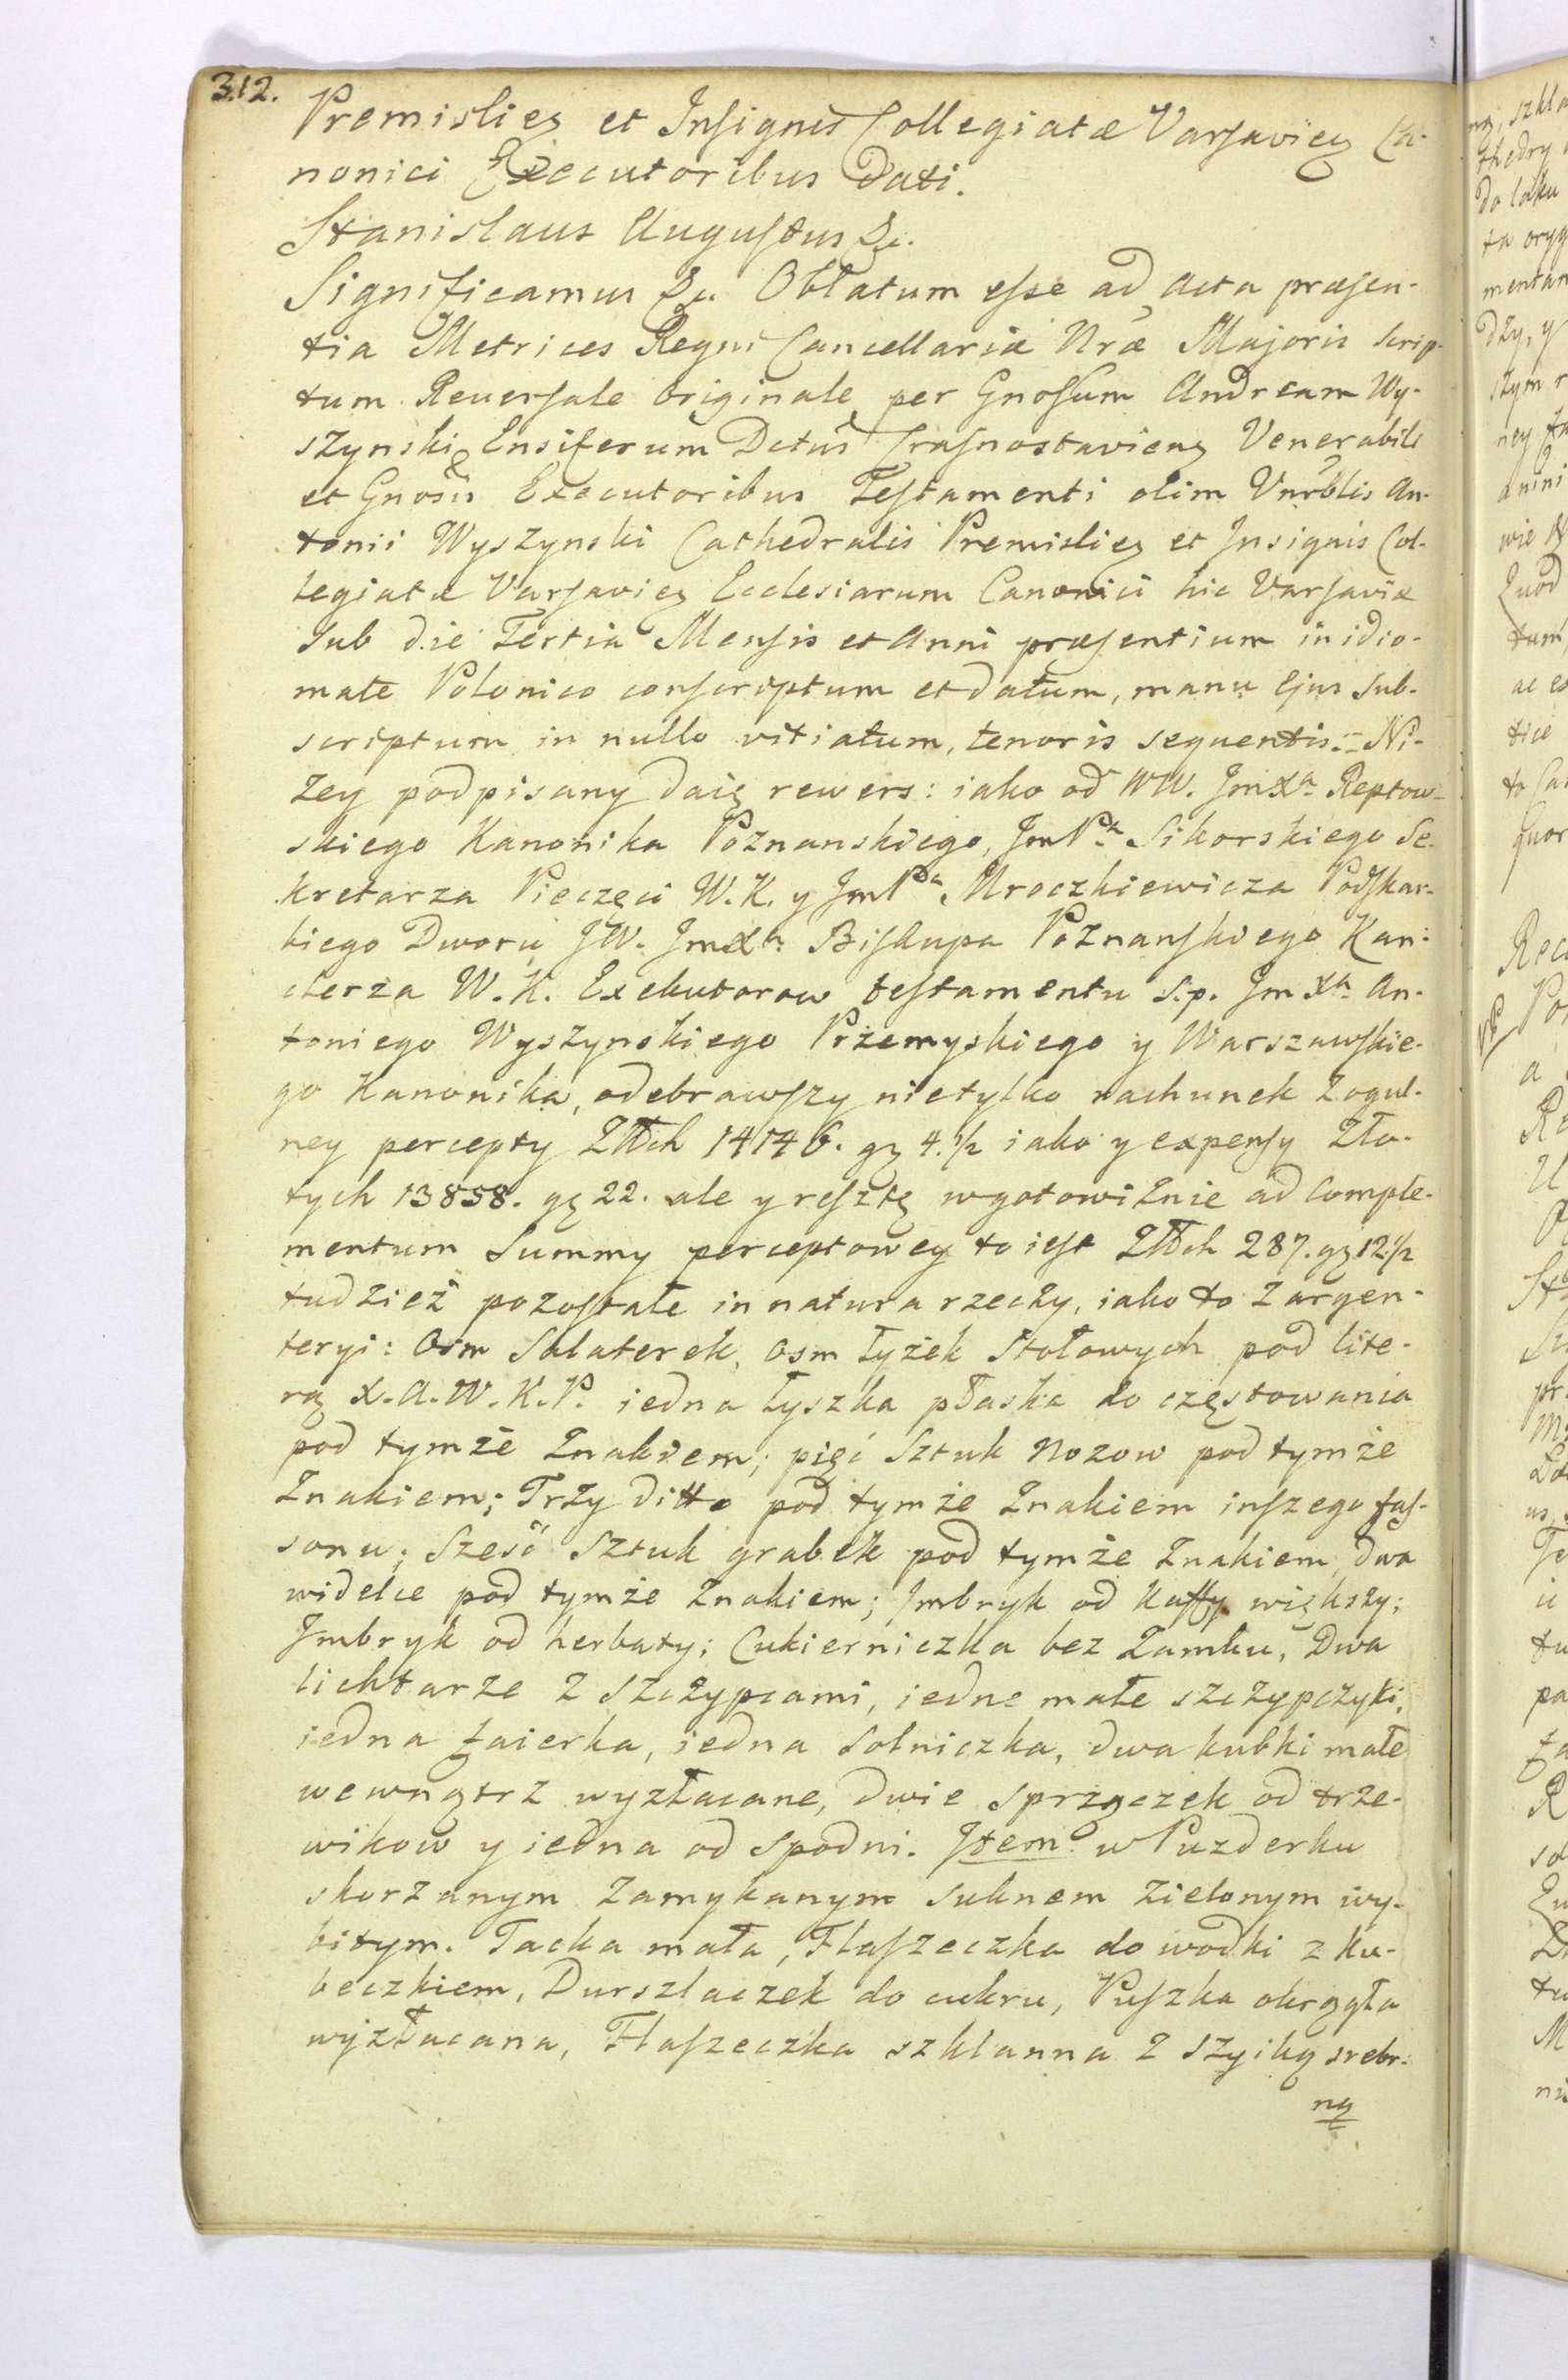 312.
Premislien et Insignis Collegiatæ Varsavien Ca-
nonici Executoribus Dati.
Stanislaus Augustus &c.
Significamus &c. Oblatum esse ad Acta præsen-
tia Metrices Regni Cancellariæ Nræ Majoris Scrip-
tum Reuersale Originale per Gnosum Andream Wy-
szynski Ensiferum Dctus Crasnostaviens Venerabili
et Gnosis Executoribus Testamenti olim Vnrblis An-
tonii Wyszynski Cathedralis Premislien et Insignis Col-
legiatæ Varsavien Ecclesiarum Canonici hic Varsaviæ
Sub die Tertia Mensis et Anni præsentium in idio-
mate Polonico conscriptum et datum, manu Ejus Sub-
scriptum in nullo vitiatum, tenoris sequentis. = Ni-
żey podpisany daię rewers: iako od WW. JmXa Reptow-
skiego Kanonika Poznanskiego, JmPa Sikorskiego Se-
kretarza Pieczęci W. K. y JmPa Mroczkiewicza Podskar-
biego Dworu JW. JmXa Biskupa Poznanskiego Kan-
clerza W. K. Exekutorow testamentu s. p. JmXa An-
toniego Wyszynskiego Przemyskiego y Warszawskie-
go Kanonika, odebrawszy nietylko rachunek z ogul-
ney percepty Złłch 14146. gg 4. 1/2 iako y expensy Zło-
tych 13858. gg 22. ale y resztę w gotowiżnie ad Comple-
mentum Summy perceptowey to iest Złłch 287. gg 12 1/2
tudzież pozostałe in natura rzeczy, iako to z argen-
teryi: Osm Salaterek, Osm łyżek Stołowych pod lite-
rą X. A. W. K. P. iedna łyszka płaska do częstowania
pod tymże Znakiem; pięć Sztuk Nozow pod tymże
Znakiem; Trzy ditto pod tymże Znakiem inszego fas-
sonu; Sześć Sztuk grabek pod tymże Znakiem, dwa
widelce pod tymże Znakiem; Imbryk od Kaffy większy;
Imbryk od herbaty; Cukierniczka bez Zamku, Dwa
lichtarze z Szczypcami, iedne małe szczypczyki,
iedna faierka, iedna Solniczka, dwa kubki małe
wewnątrz wyzłacane, dwie sprzączek od trze-
wikow y iedna od Spodni. Item w Puzderku
skorzanym Zamykanym suknem zielonym wy-
bitym. Tacka mała, Flaszeczka do wodki z Ku-
beczkiem, Durszlaczek do cukru, Puszka okrągła
wyzłacana, Flaszeczka szklanna z Szyiką srebr-
ną